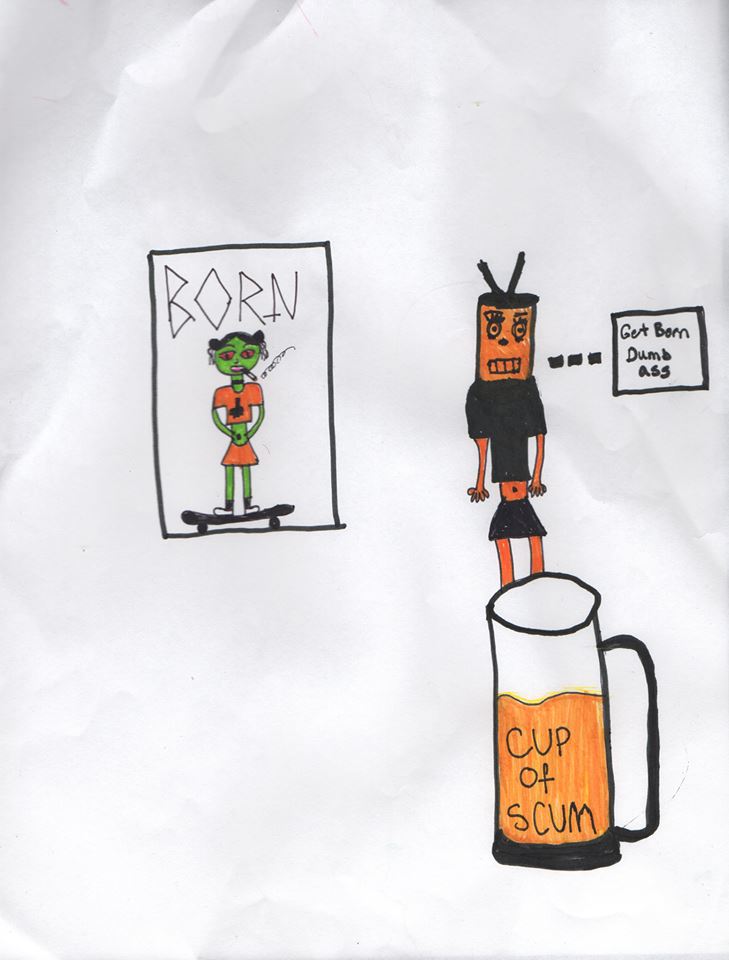 BORN
Get Born
Dumb
ass
CUP
Of
SCUM